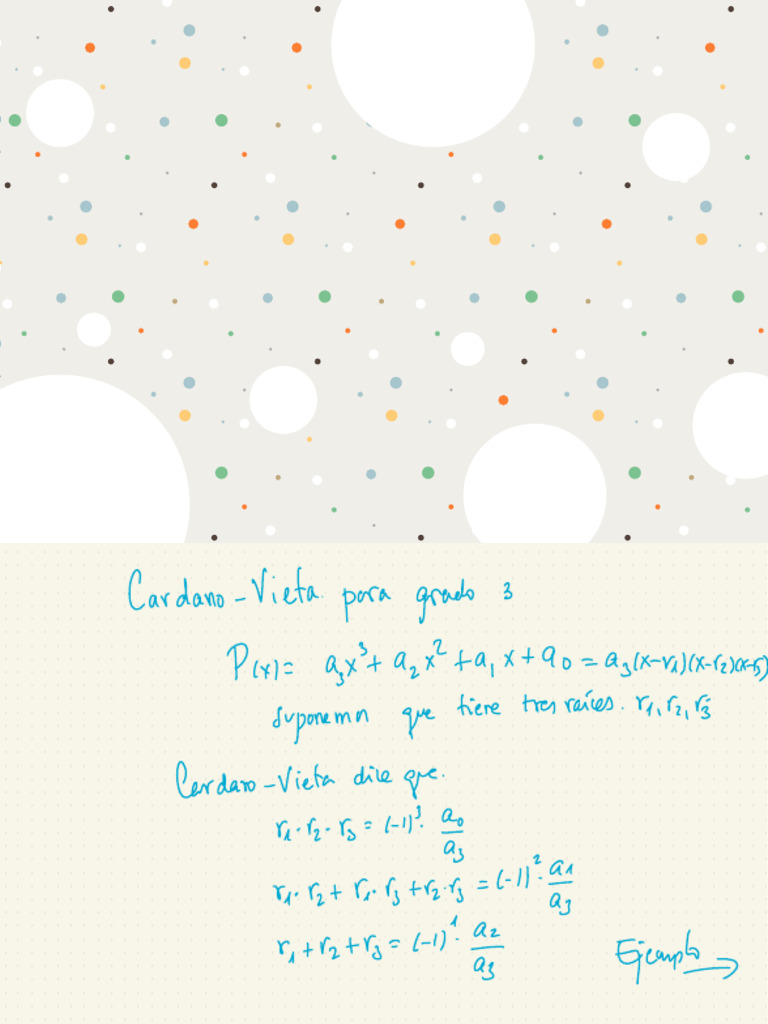 Cardano-Vieta para grado 3
P(x) = a₃x³ + a₂x² + a₁x + a₀ = a₃(x-r₁)(x-r₂)(x-r₃)
suponemn que tiene tres raíces. r₁, r₂, r₃
Cardano-Vieta dice que.
r₁·r₂·r₃ = (-1)³· a₀/a₃
r₁·r₂ + r₁·r₃ + r₂·r₃ = (-1)²· a₁/a₃
r₁+r₂+r₃ = (-1)¹· a₂/a₃
Ejemplo →